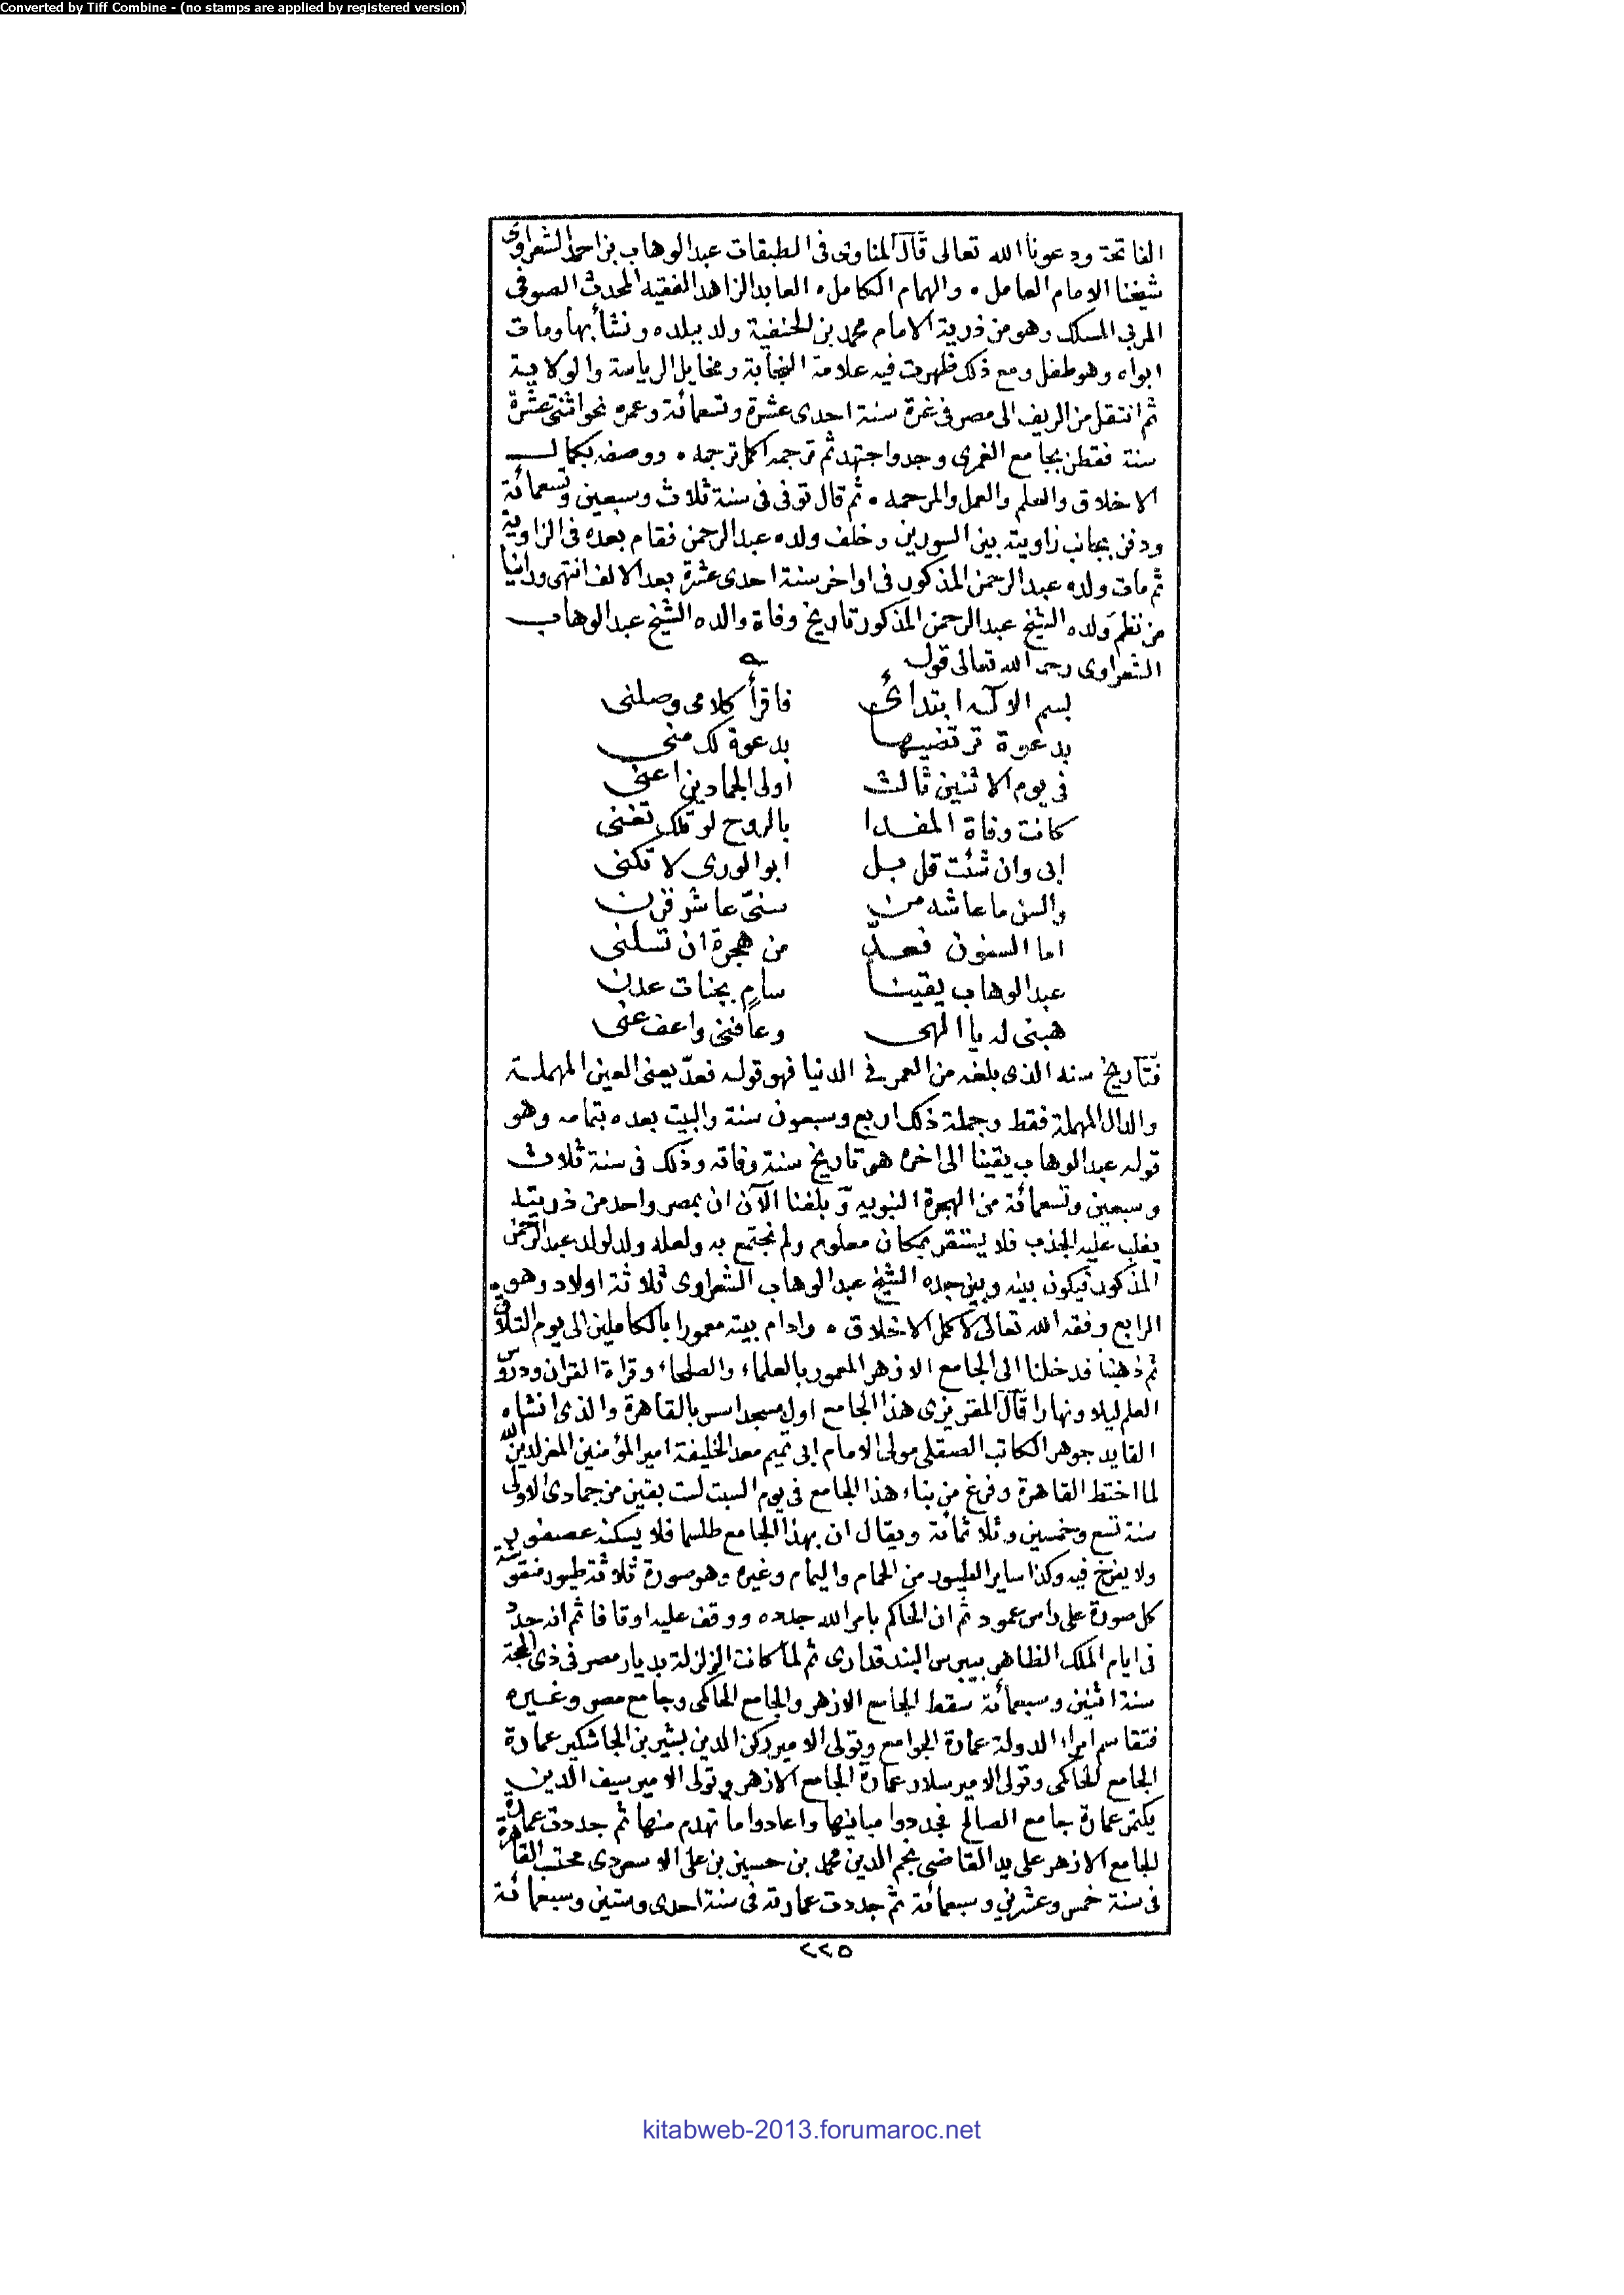 Converted by Tiff Combine - (no stamps are applied by registered version)
الفاتحة ودعونا الله تعالى قال المناوى فى الطبقات عبد الوهاب بن احمد الشعراوى
شيخنا الامام العامل ٠ والهمام الكامل ٠ العابد الزاهد الفقيه المحدث الصوفى
المربى المسلك وهو من ذرية الامام محمد بن الحنفية ولد ببلده ونشأ بها ومات
ابواه وهو طفل ومع ذلك ظهرت فيه علامة النجابة ومخايل الرياسة والولاية
ثم انتقل من الريف الى مصر فى غرة سنة احدى عشرة وتسعمائة وعمره نحو اثنتى عشرة
سنة فقطن بجامع الغمرى وجد واجتهد ثم ترجمه اكمل ترجمه ٠ ووصفه بكمال
الاخلاق والعلم والعمل والمرحمه ٠ ثم قال توفى فى سنة ثلاث وسبعين وتسعمائة
ودفن بجانب زاويته بين السورين وخلف ولده عبد الرحمن فقام بعده فى الزاوية
ثم مات ولده عبد الرحمن المذكور فى اواخر سنة احدى عشرة بعد الالف انتهى وراينا
من نظم ولده الشيخ عبد الرحمن المذكور تاريخ وفاة والده الشيخ عبد الوهاب
الشعراوى رحمه الله تعالى قوله
بسم الاله ابتدائى فاقرأ كلامى وصلنى
بدعوة ترتضيها بدعوة لك منى
فى يوم الاثنين ثالث اولى الجمادين اعنى
كانت وفاة المفدا بالروح لو تلك تغنى
ابى وان شئت قل بل ابو الورى لا تكنى
والسن ما عاشه من سنىّ عاشر قرن
اما السنون فعدّ من هجرة ان تسلنى
عبد الوهاب يقينا سامٍ بجنات عدن
هبنى له يا الهى وعافنى واعف عنى
فتاريخ سنه الذى بلغه من العمر فى الدنيا فهو قوله فعدّ يعنى العين المهملة
والدال المهملة فقط وجملة ذلك اربع وسبعون سنة والبيت بعده بتمامه وهو
قوله عبد الوهاب يقينا الى اخره هو تاريخ سنة وفاته وذلك فى سنة ثلاث
وسبعين وتسعمائة من الهجرة النبويه وبلغنا الآن ان بمصر واحد من ذريته
يغلب عليه الجذب فلا يستقر بمكان معلوم ولم نجتمع به ولعله ولد لولد عبد الرحمن
المذكور فيكون بينه وبين جده الشيخ عبد الوهاب الشعراوى ثلاثة اولاد وهو
الرابع وفقه الله تعالى لاكمل الاخلاق ٠ وادام بيته معمورا بالكاملين الى يوم التلاق
ثم ذهبنا فدخلنا الى الجامع الازهر المعمور بالعلماء والصلحاء وقراة القران ودروس
العلم ليلا ونهارا قال المقريزى هذا الجامع اول مسجد اسس بالقاهرة والذى انشاه
القايد جوهر الكاتب الصقلى مولى الامام ابى تميم معد الخليفة امير المؤمنين المعز لدين الله
لما اختط القاهرة وفرغ من بناء هذا الجامع فى يوم السبت لست بقين من جمادى الاولى
سنة تسع وخمسين وثلاثمائة ويقال ان بهذا الجامع طلسما فلا يسكنه عصفور
ولا يفرخ فيه وكذا ساير الطيور من الحمام واليمام وغيره وهو صورة ثلاثة طيور منقوشة
كل صورة على راس عمود ثم ان الحاكم بامر الله جدده ووقف عليه اوقافا ثم انه جدد
فى ايام الملك الظاهر بيبرس البندقدارى ثم لما كانت الزلزلة بديار مصر فى ذى الحجة
سنة اثنين وسبعمائة سقط الجامع الازهر والجامع الحاكمى وجامع مصر وغيره
فتقاسم امراء الدولة عمارة الجوامع وتولى الامير ركن الدين بشير بن الجاشكير عمارة
الجامع الحاكمى وتولى الامير سلار عمارة الجامع الازهر وتولى الامير سيف الدين
بكتمر عمارة جامع الصالح فجددوا مبانيها واعادوا ما تهدم منها ثم جددت عمارة
الجامع الازهر على يد القاضى نجم الدين محمد بن حسين بن على الاسعردى محتسب القاهرة
فى سنة خمس وعشرين وسبعمائة ثم جددت عمارته فى سنة احدى وستين وسبعمائة
٢٢٥
kitabweb-2013.forumaroc.net